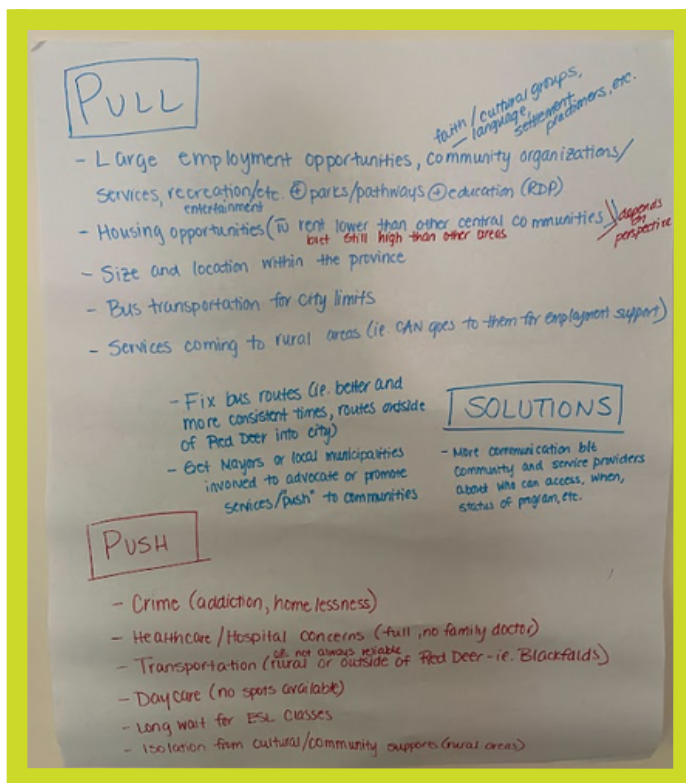 PULL
faith / cultural groups,
language,
settlement
practitioners, etc.
- Large employment opportunities, community organizations/
services, recreation/etc. ⊕ parks/pathways ⊕ education (RDP)
entertainment
- Housing opportunities (rent lower than other central communities)
but still high than other areas
depends
on
perspective
- Size and location within the province
- Bus transportation for city limits
- Services coming to rural areas (ie. CAN goes to them for employment support)
- Fix bus routes (ie. better and
more consistent times, routes outside
of Red Deer into city)
- Get Mayors or local municipalities
involved to advocate or promote
services/"push" to communities
SOLUTIONS
- More communication b/t
community and service providers
about who can access, when,
status of program, etc.
PUSH
- Crime (addiction, homelessness)
- Healthcare/Hospital concerns (-full, no family doctor)
not always reliable
- Transportation (rural or outside of Red Deer - ie. Blackfalds)
- Daycare (no spots available)
- Long wait for ESL classes
- Isolation from cultural/community supports (rural areas)